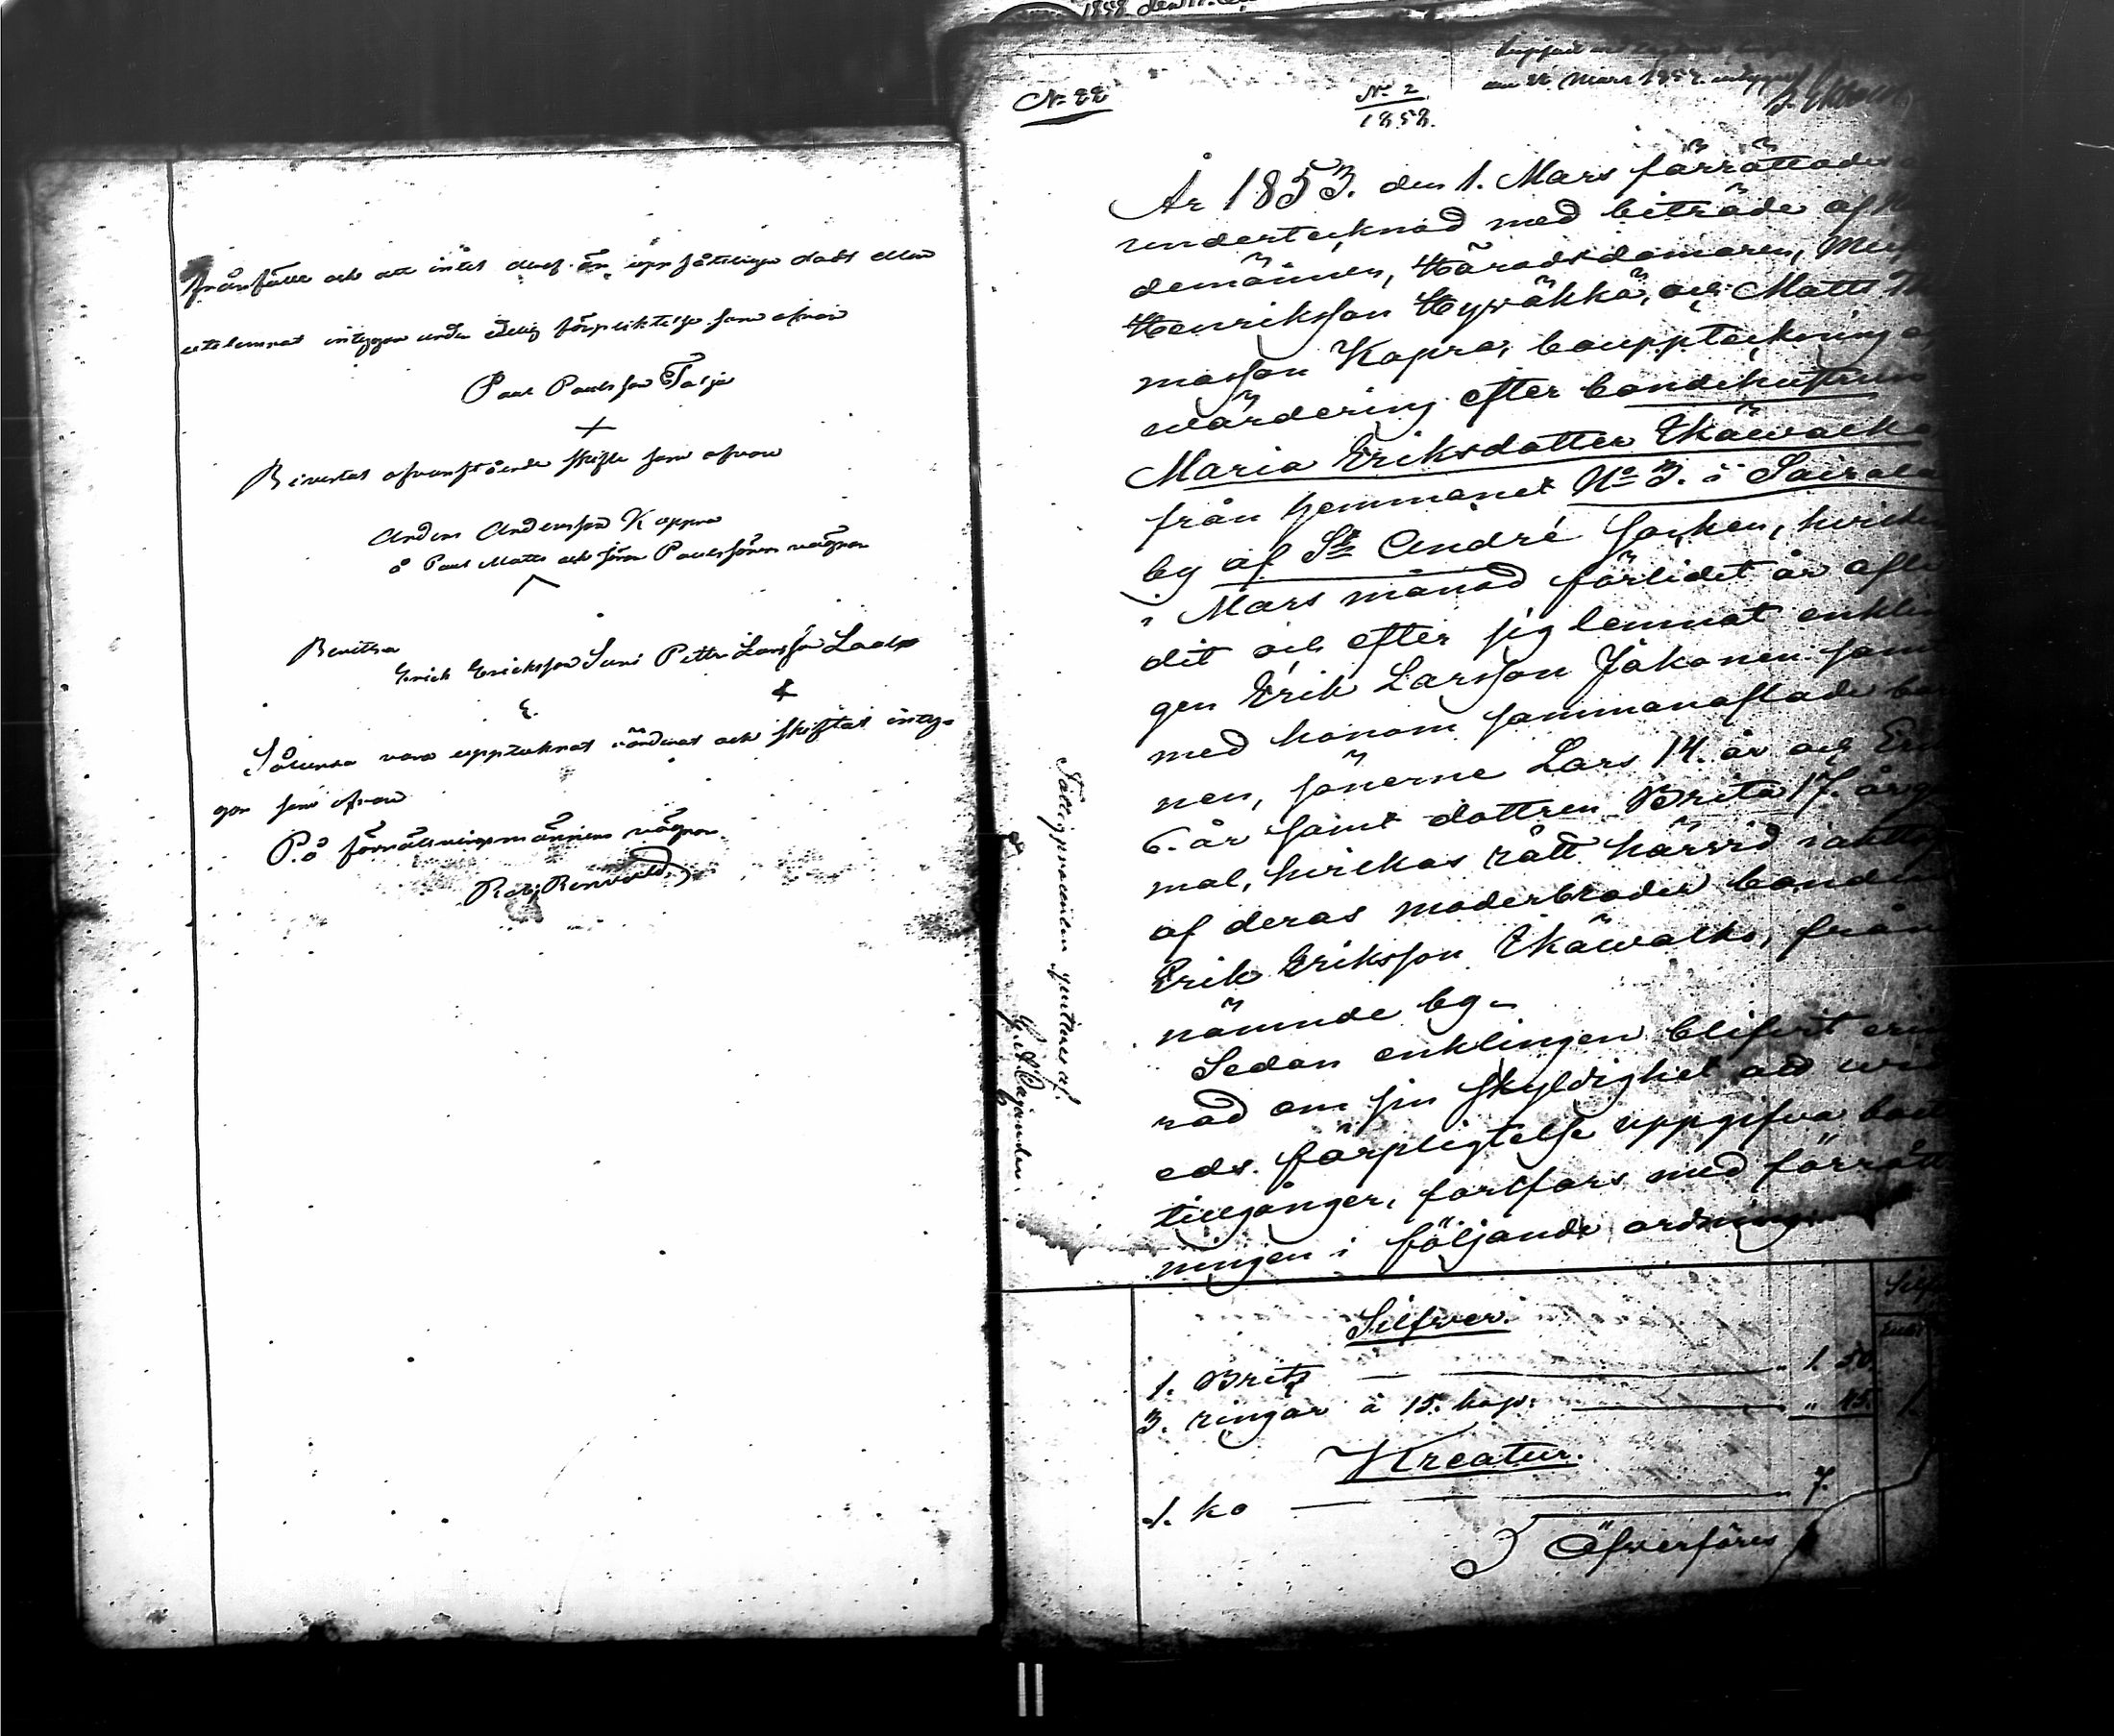 frånfälle och att intet deraf är uppsåteligen dadt eller
utelemnat intygar under edelig förpliktelse som ofvan
Paul Paulsson Talja
Bivistat ofvanstående skifte som ofvan
Anders Andersson Kappra
å Paul Matts och Jöran Paulssöners vägnar
Bevittna
Erich Ericksson Suni Petter Larsson
Sålunda vara upptecknat värderat och skiftat inty-
gar som ofvan
På förrättningsmännens vägnar
Rob. Renvald
1858 den 11.
No 22
No 2
1858.
den 22 Mars 1858. intygar
År 1853. den 1. Mars förrättades
undertecknad med biträde af
demännen, Häradsdomaren,
Henriksson Hyväkkä, och Matts Tho
masson Kapra, bouppteckning
värdering efter bondehustrun
Maria Eriksdotter Ikäwalko
från hemmanet No 3. i Sairala
by af St André socken, hvilken
i Mars månad förlidet år afli
dit och efter sig lemnat enklin
gen Erik Larsson Jäkonen samt
med honom sammanaflade bar
nen, sönerne Lars 14. år och Eri
6. år samt dottren Brita 17. år ga
mal, hvilkas rätt härvid iakttog
af deras moderbroder bonden
Erik Eriksson Ikäwalko, från
nämnde by.
Sedan enklingen blifvit erin
rad om sin skyldighet att wid
eds. förpligtelse uppgifva boets
tillgångar, fortfors med förrätt
ningen i följande ordning:
Fattigprocenten qvitteras af.
Silfwer.
1. Brits 1. 50.
3. ringar à 15. kop. " 45. 1
Kreatur.
1. ko 7.
Öfwerföres